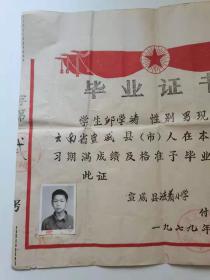 毕业证书
学生邱学靖 性别 男 现
云南省宣威县(市)人在本
习期满成绩及格准予毕业
此证
宣威县 小学
付
一九七九年
字第
号